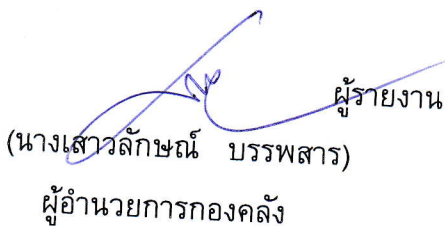 ผู้รายงาน
(นางเสาวลักษณ์ บรรพสาร)
ผู้อำนวยการกองคลัง